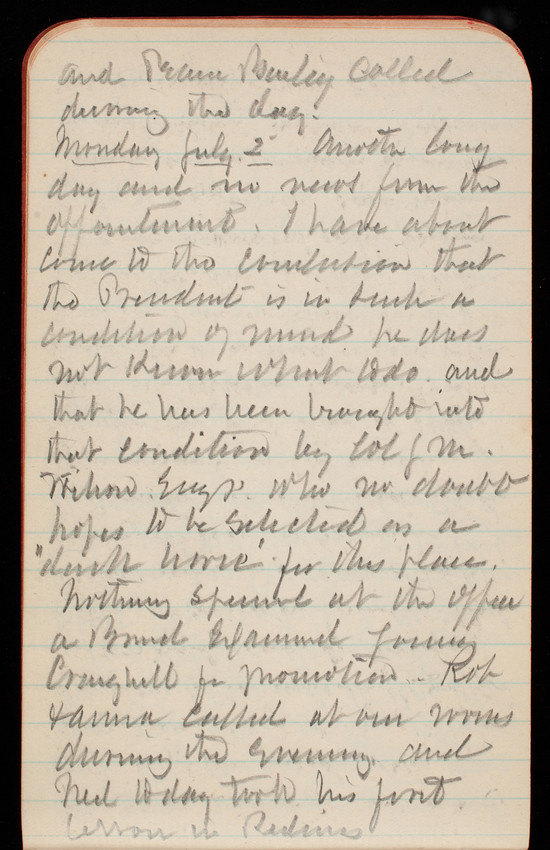 and Bailey called
during the day.
Monday July 2 Another long
day and no news from the
appointment. I have about
come to the conclusion that
the President is in such a
condition of mind he does
not know what to do and
that he has been brought into
that condition by Col J M.
Wilson Engr. who no doubt
hopes to be selected as a
"dark horse" for this place.
Nothing special at the office
a Board Examined young
Craighill for promotion. Rob
& Anna called at our rooms
during the evening and
Ned today took his first
lesson in